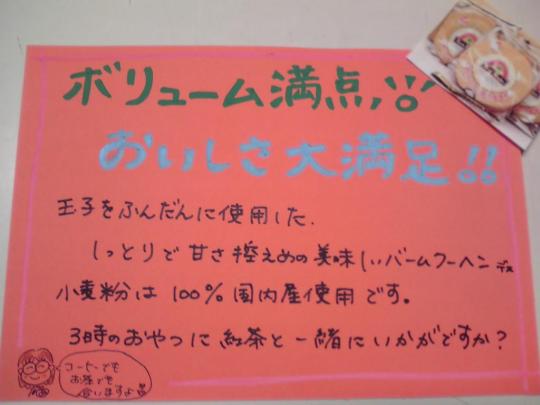 ボリューム満点!!
おいしさ大満足!!
玉子をふんだんに使用した、
しっとりで甘さ控えめの美味しいバームクーヘンデス
小麦粉は100%国内産使用です。
3時のおやつに紅茶と一緒にいかがですか?
コーヒーでも
お茶でも
合いますよ